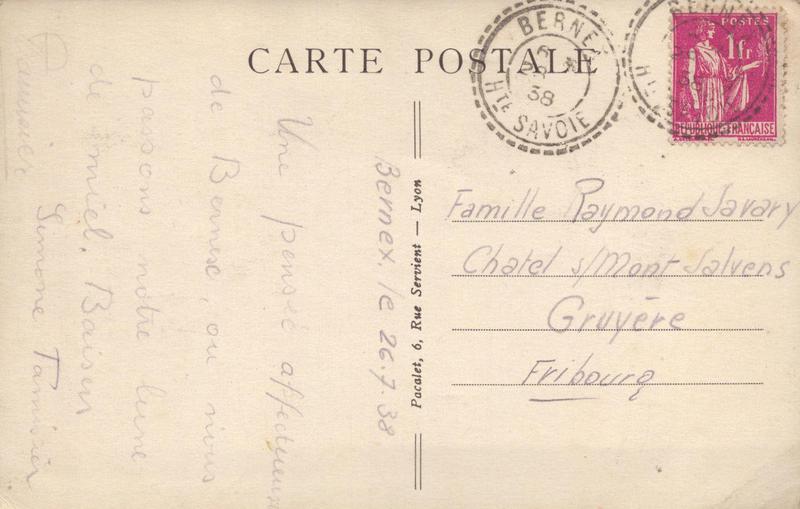 CARTE POSTALE
BERNEX
26
38
HTE SAVOIE
POSTES
1fr
REPUBLIQUE FRANÇAISE
Bernex, le 26.7.38
Une pensée affectueuse
de Bernex, où nous
passons notre lune
de miel. Baisers
Simone
Pacalet, 6, Rue Servient — Lyon
Famille Raymond Javary
Chatel s/Mont Salvens
Gruyère
Fribourg